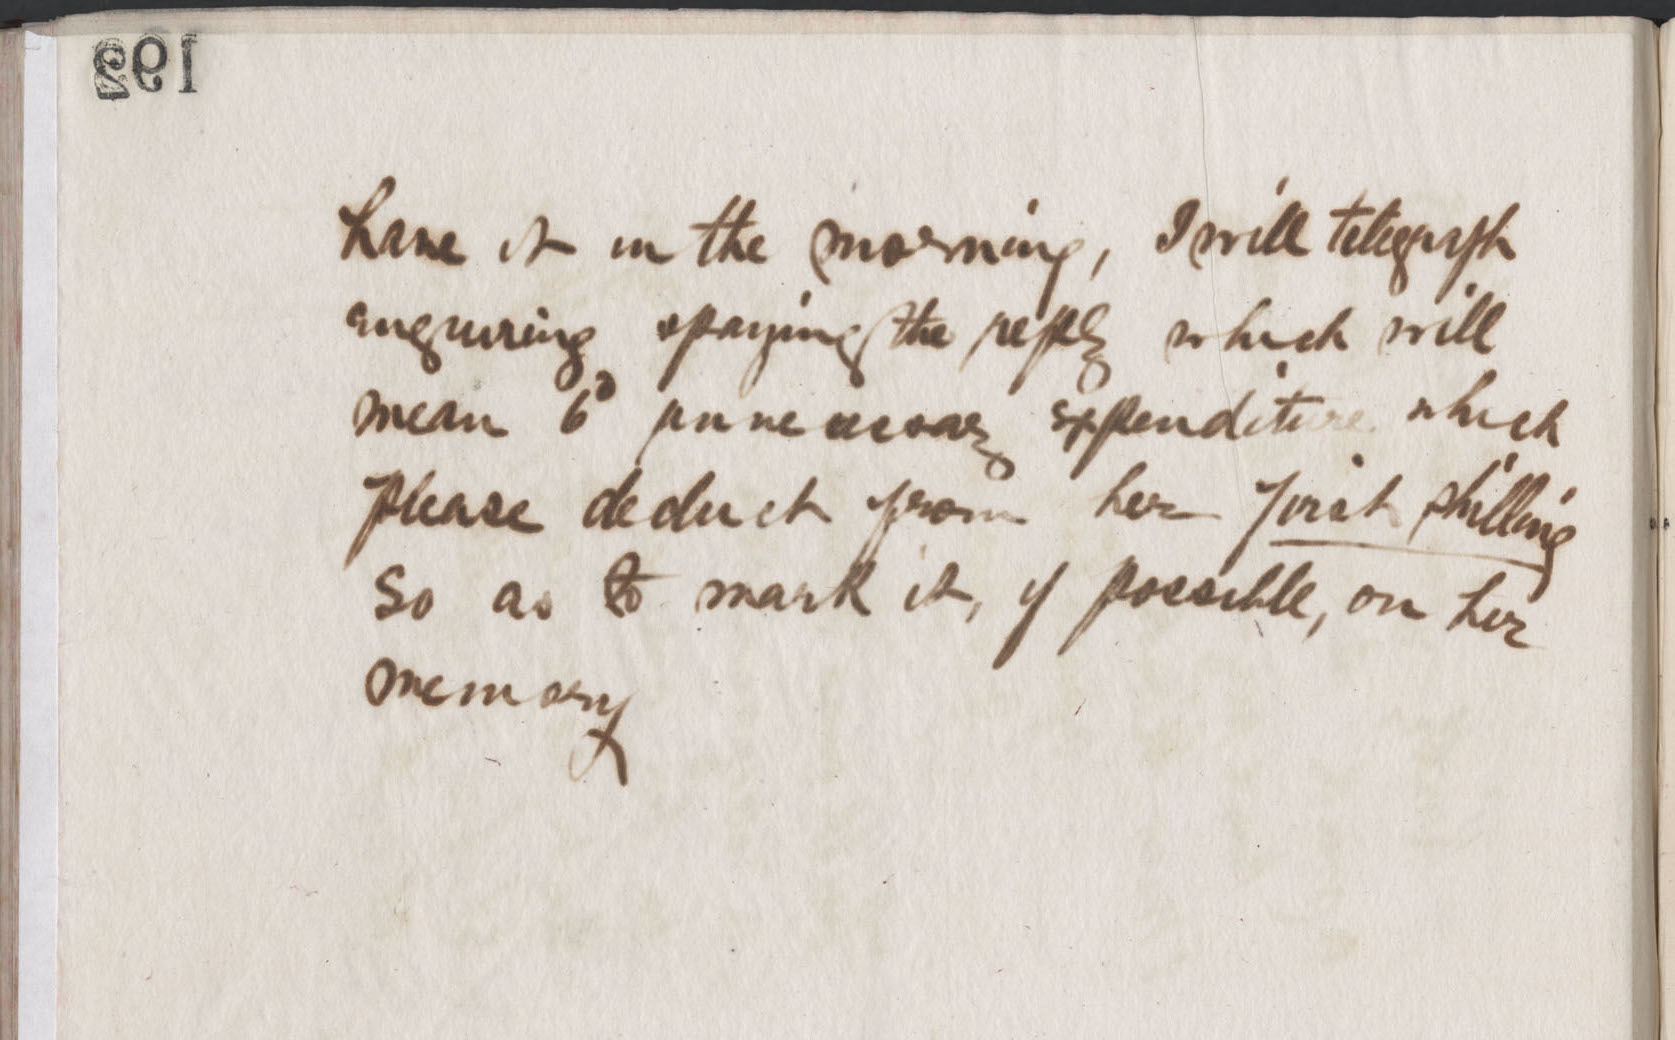 192
have it in the morning, I will telegraph
enquiring & paying the reply which will
mean 6d unnecessary expenditure which
please deduct from her first shilling
so as to mark it, if possible, on her
memory